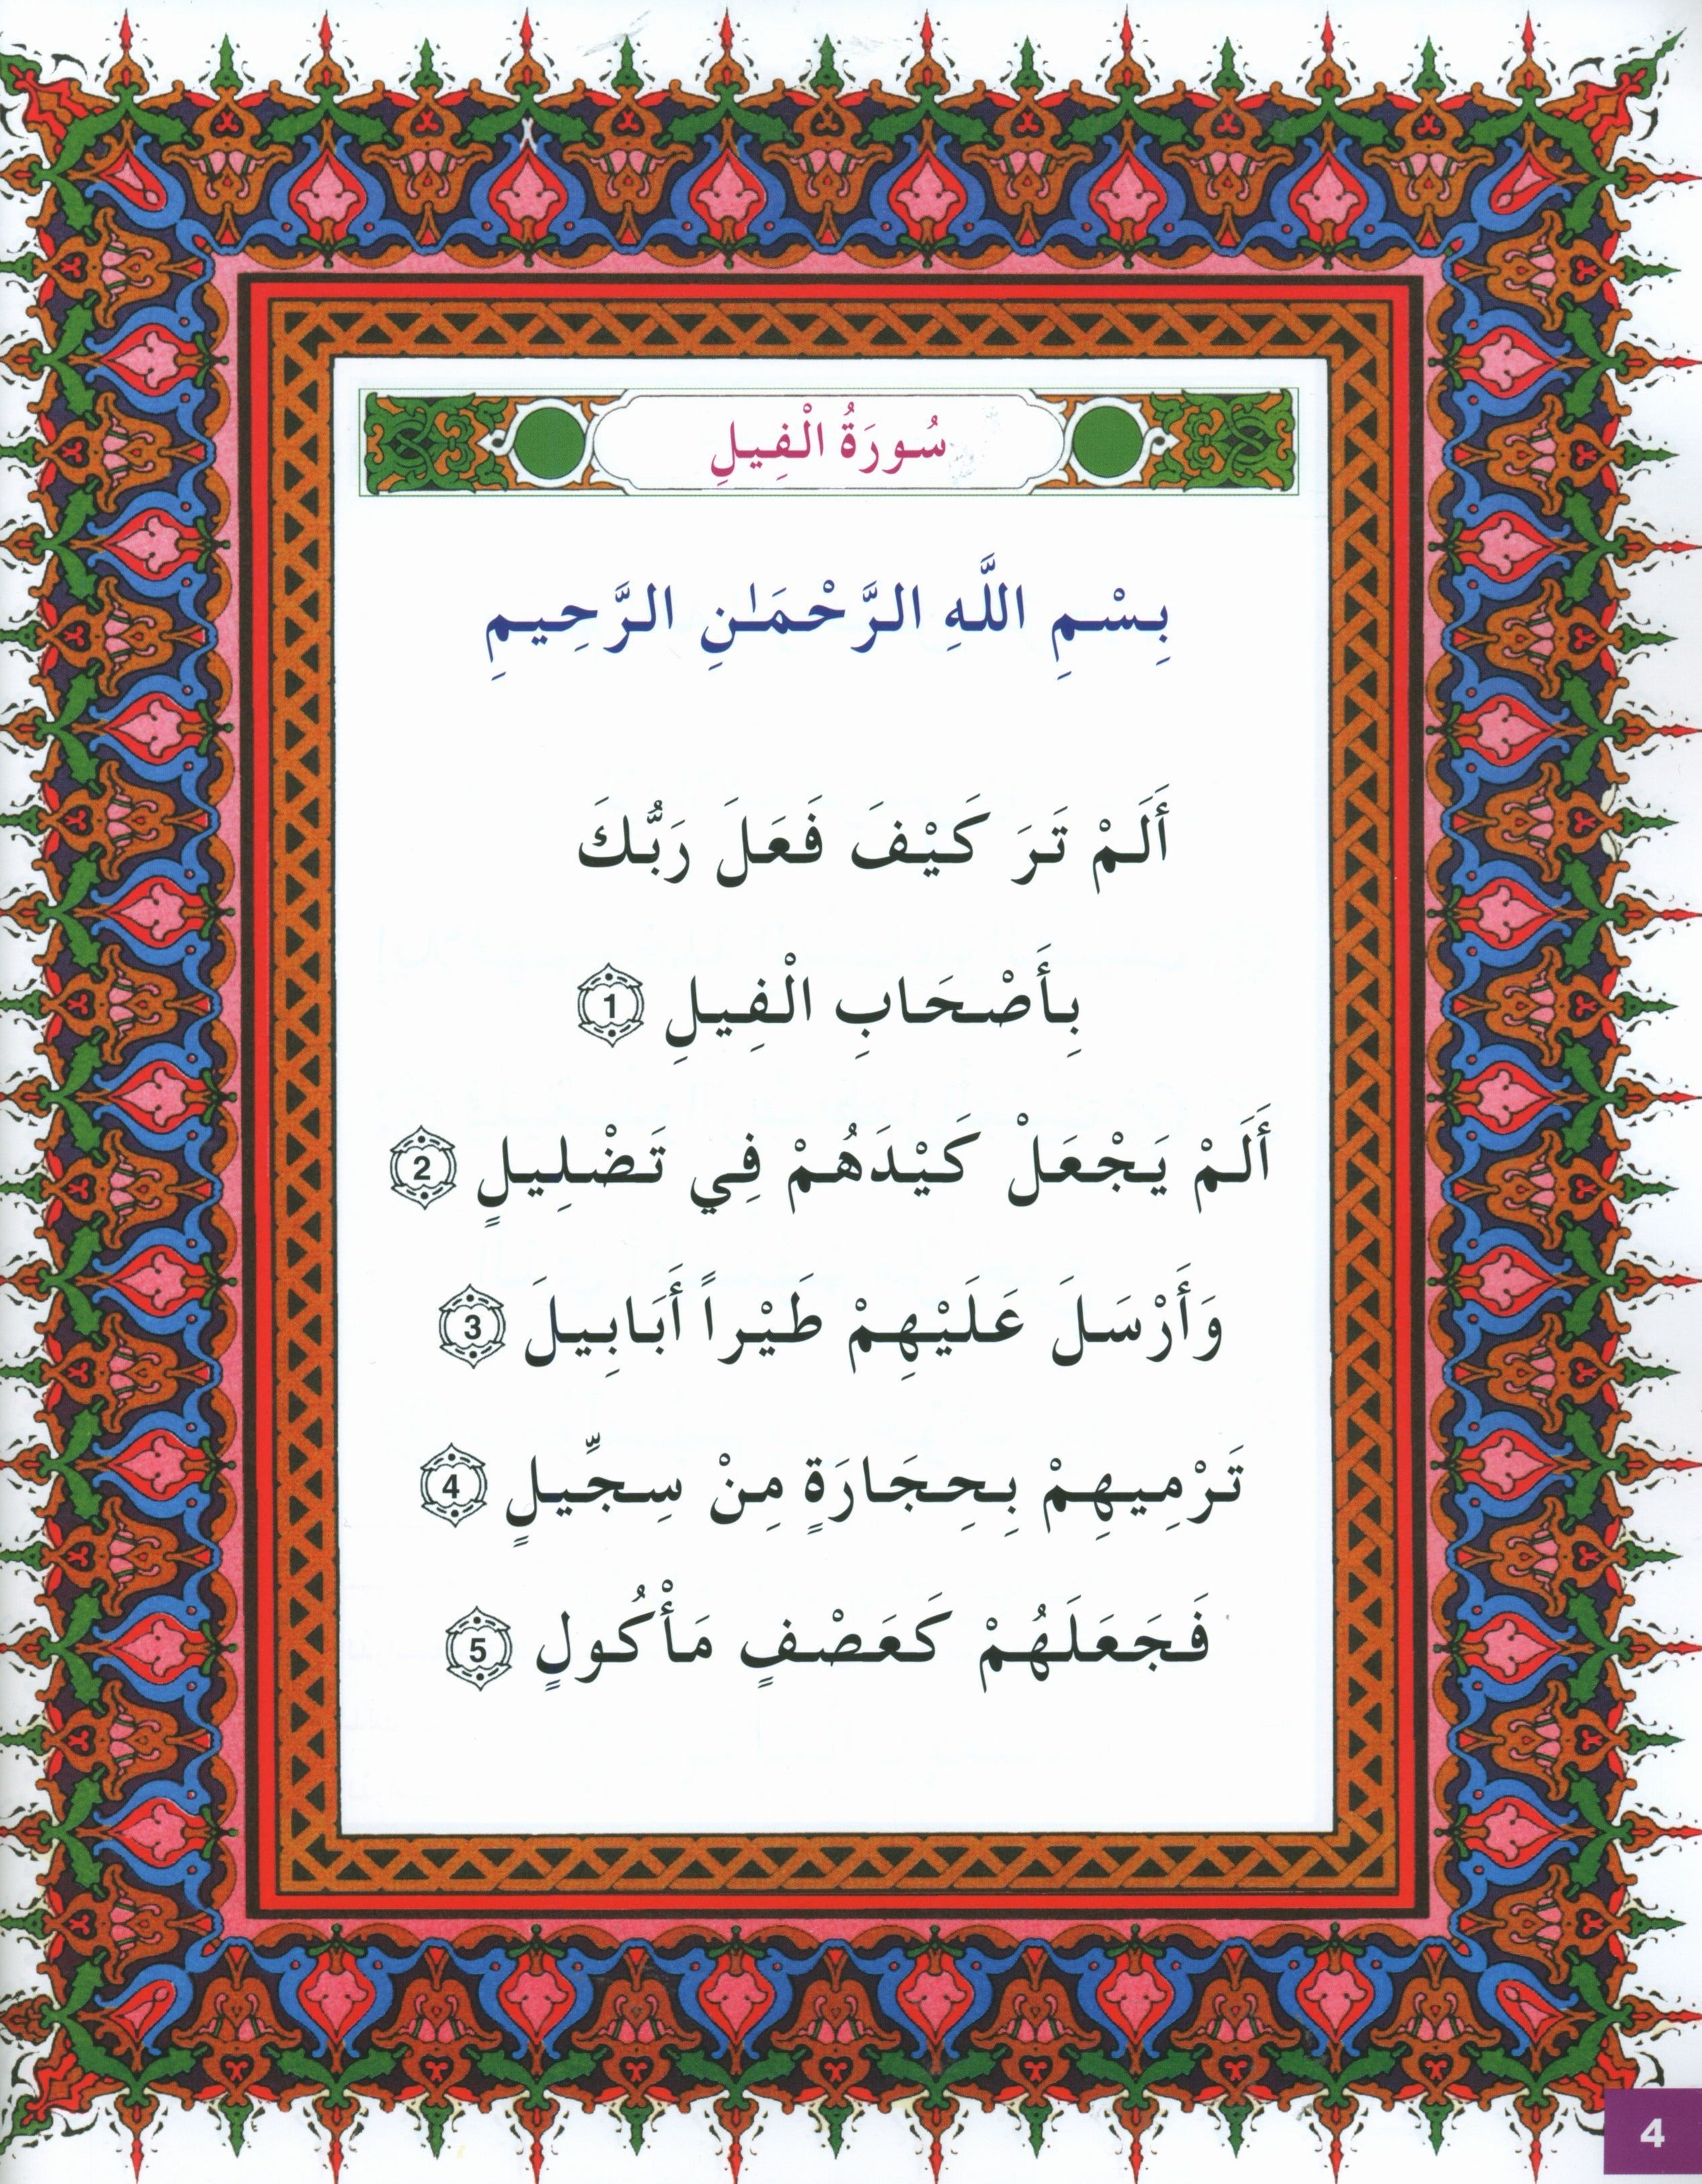 سُورَةُ الْفِيلِ
بِسْمِ اللَّهِ الرَّحْمَٰنِ الرَّحِيمِ
أَلَمْ تَرَ كَيْفَ فَعَلَ رَبُّكَ
بِأَصْحَابِ الْفِيلِ 1
أَلَمْ يَجْعَلْ كَيْدَهُمْ فِي تَضْلِيلٍ 2
وَأَرْسَلَ عَلَيْهِمْ طَيْراً أَبَابِيلَ 3
تَرْمِيهِمْ بِحِجَارَةٍ مِنْ سِجِّيلٍ 4
فَجَعَلَهُمْ كَعَصْفٍ مَأْكُولٍ 5
4